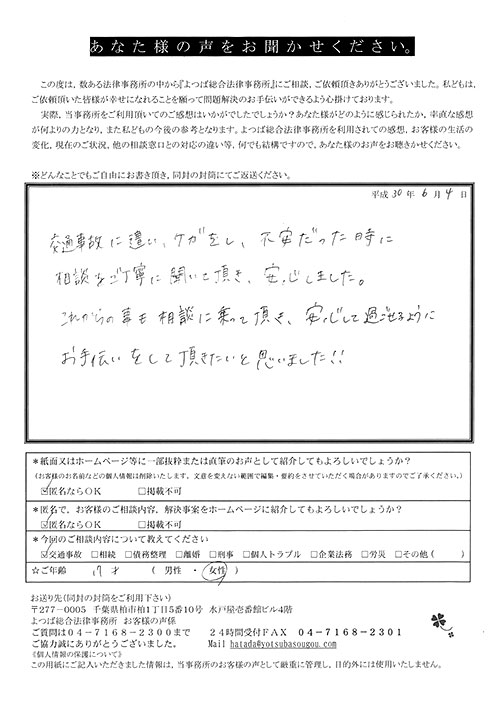 あなた様の声をお聞かせください。
この度は、数ある法律事務所の中から『よつば総合法律事務所』にご相談、ご依頼頂きありがとうございました。私どもは、
ご依頼頂いた皆様が幸せになれることを願って問題解決のお手伝いができるよう心掛けております。
実際、当事務所をご利用頂いてのご感想はいかがでしたでしょうか？あなた様がどのように感じられたか、率直な感想
が何よりの力となり、また私どもの今後の参考となります。よつば総合法律事務所を利用されての感想、お客様の生活の
変化、現在のご状況、他の相談窓口との対応の違い等、何でも結構ですので、あなた様のお声をお聴きかせください。
※どんなことでもご自由にお書き頂き、同封の封筒にてご返送ください。
平成 30 年 6 月 4 日
交通事故に遭い、ケガをし、不安だった時に
相談をご丁寧に聞いて頂き、安心しました。
これからの事も相談に乗って頂き、安心して過ごせるように
お手伝いをして頂きたいと思いました!!
＊紙面又はホームページ等に一部抜粋または直筆のお声として紹介してもよろしいでしょうか？
（お客様のお名前などの個人情報は削除いたします。文意を変えない範囲で編集・要約をさせていただく場合がありますのでご了承ください。）
☑匿名ならOK □掲載不可
＊匿名で、お客様のご相談内容、解決事案をホームページに紹介してもよろしいでしょうか？
☑匿名ならOK □掲載不可
＊今回のご相談内容について教えてください
☑交通事故 □相続 □債務整理 □離婚 □刑事 □個人トラブル □企業法務 □労災 □その他（ ）
☆ご年齢 17 才 （ 男性 ・ 女性 ）
お送り先（同封の封筒をご利用下さい）
〒277－0005 千葉県柏市柏1丁目5番10号 水戸屋壱番館ビル4階
よつば総合法律事務所 お客様の声係
ご質問は04－7168－2300まで 24時間受付FAX 04－7168－2301
ご協力誠にありがとうございました。 Mail hatada@yotsubasougou.com
《個人情報の保護について》
この用紙にご記入いただきました情報は、当事務所のお客様の声として厳重に管理し、目的外には使用いたしません。